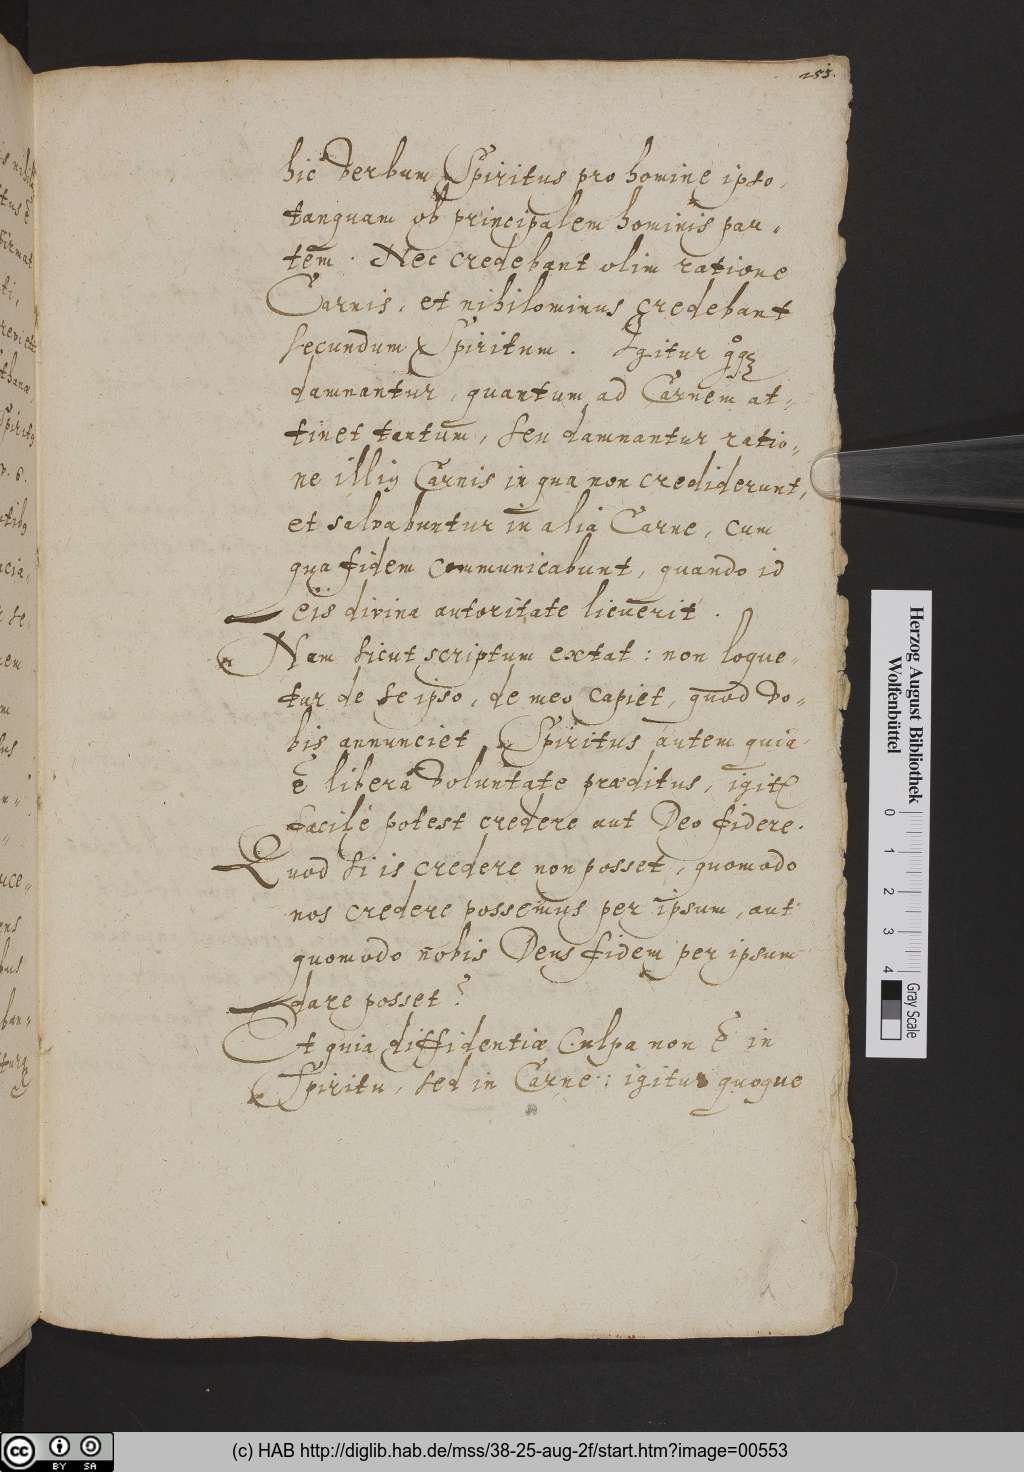 253.
hic Verbum Spiritus pro homine ipso,
tanquam ob principalem hominis par„
tem. Nec credebant olim ratione
Carnis, et nihilominus credebant
secundum Spiritum. Igitur
damnantur, quantum ad Carnem at„
tinet tantum, seu damnantur ratio„
ne illiꝰ Carnis in qua non crediderunt,
et salvabuntur in aliâ Carne, cum
qua fidem communicabunt, quando id
eis divina autoritate licuerit.
Nam sicut scriptum extat: non loque„
tur de se ipso, de meo capiet, quod Vo„
bis annunciet, Spiritus autem quia
ē liberâ Voluntate præditus, igitᷣ
facilè potest credere aut Deo fidere.
Quod si is credere non posset, quomodo
nos credere possemus per ipsum, aut
quomodo nobis Deus fidem per ipsum
dare posset?
Et quia diffidentiæ Culpa non ē in
Spiritu, sed in Carne: igitur quoque
Herzog August Bibliothek
Wolfenbüttel
0 1 2 3 4
Gray Scale
cc BY SA
(c) HAB http://diglib.hab.de/mss/38-25-aug-2f/start.htm?image=00553